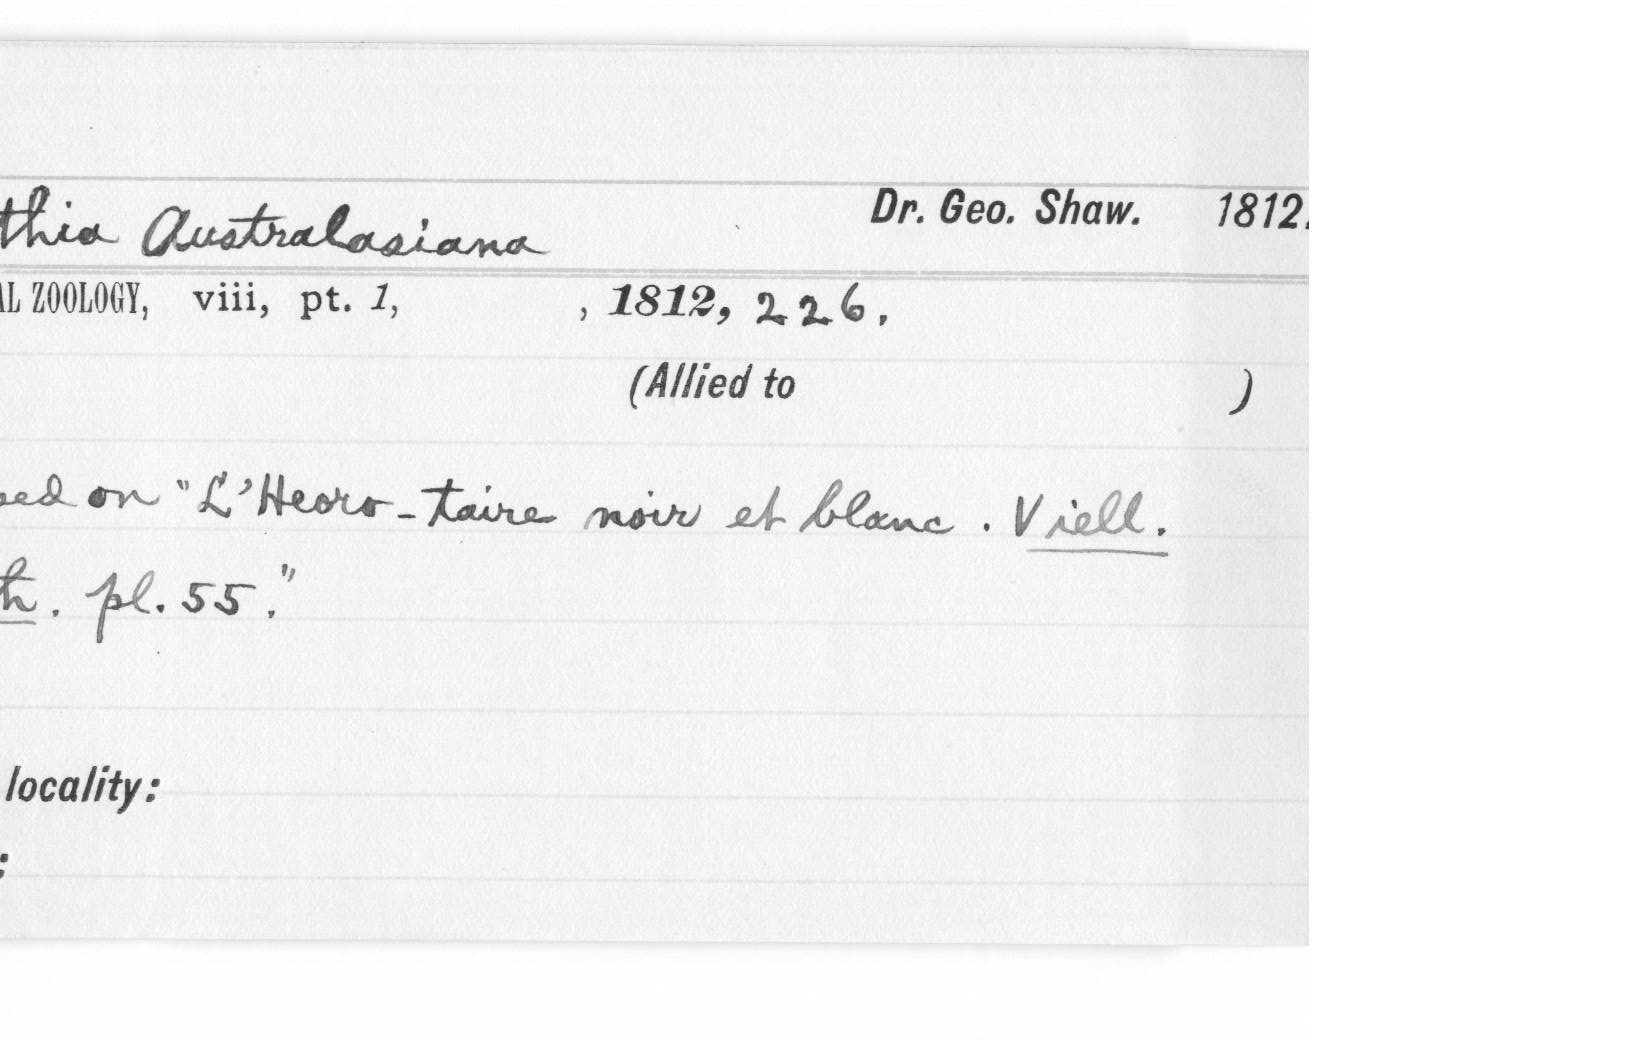 thia Australasiana Dr. Geo. Shaw. 1812.
AL ZOOLOGY, viii, pt. 1, , 1812, 226.
(Allied to )
sed on "L'Heoro-taire noir et blanc. Viell.
th. pl. 55."
locality:
: